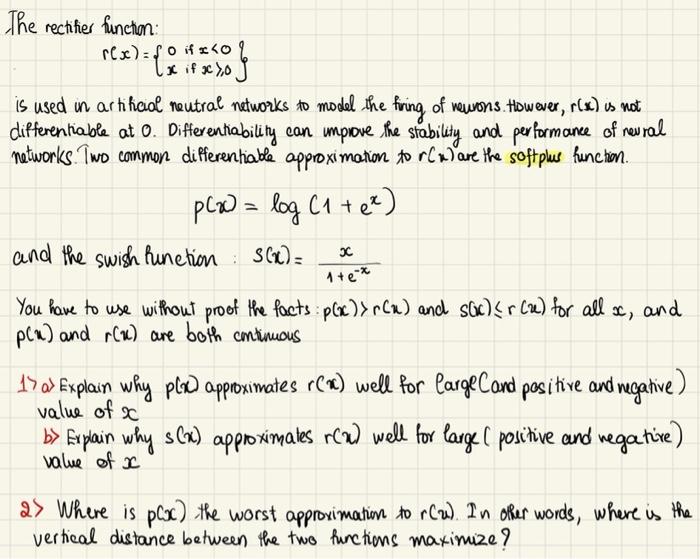 The rectifier function:
r(x) = { 0 if x<0
x if x≥0 }
is used in artificial neutral networks to model the firing of neurons. However, r(x) is not
differentiable at 0. Differentiability can improve the stability and performance of neural
networks. Two common differentiable approximation to r(x) are the softplus function.
p(x) = log (1 + eˣ)
and the swish function : s(x) = x / (1 + e⁻ˣ)
You have to use without proof the facts : p(x) > r(x) and s(x) ≤ r(x) for all x, and
p(x) and r(x) are both continuous
1> a> Explain why p(x) approximates r(x) well for large (and positive and negative)
value of x
b> Explain why s(x) approximates r(x) well for large ( positive and negative)
value of x
2> Where is p(x) the worst approximation to r(x). In other words, where is the
vertical distance between the two functions maximize?